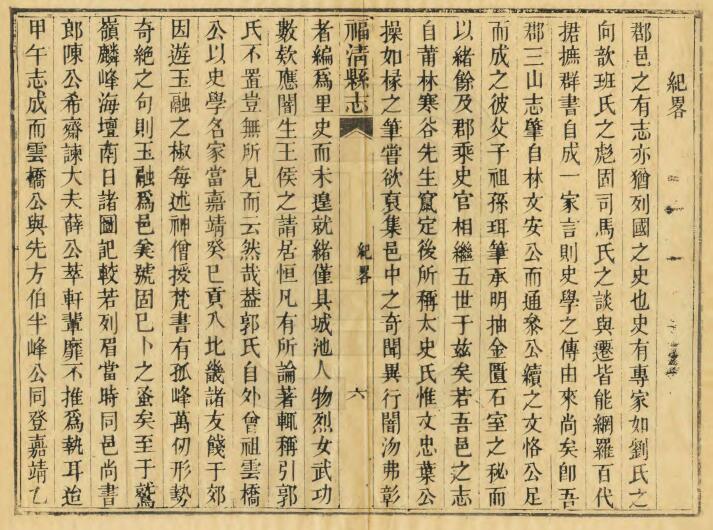 紀畧
郡邑之有志亦猶列國之史也史有專家如劉氏之
向歆班氏之彪固司馬氏之談與遷皆能網羅百代
捃摭群書自成一家言則史學之傳由來尚矣卽吾
郡三山志肇自林文安公而通叅公續之文恪公足
而成之彼父子祖孫珥筆承明抽金匱石室之秘而
以緒餘及郡乘史官相繼五世于兹矣若吾邑之志
自莆林寒谷先生竄定後所稱太史氏惟文忠葉公
操如椽之筆嘗欲裒集邑中之奇聞異行闇汤弗彰
福清縣志
紀畧
六
者編爲里史而未遑就緒僅具城池人物烈女武功
數欵應闇生王侯之請居恒凡有所論著輒稱引郭
氏不置豈無所見而云然哉葢郭氏自外曾祖雲橋
公以史學名家當嘉靖癸巳貢入北畿諸友餞于郊
因遊玉融之椒每述神僧授梵書有孤峰萬仞形勢
奇絶之句則玉融爲邑矣號固巳卜之蚤矣至于鷲
嶺麟峰海壇南日諸圖記較若列眉當時同邑尚書
郎陳公希齋諫大夫薛公萃軒輩靡不推爲執耳迨
甲午志成而雲橋公與先方伯半峰公同登嘉靖乙